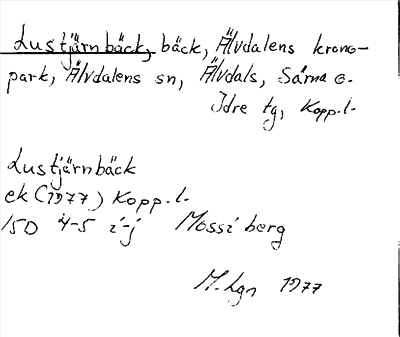 Lustjärnbäck, bäck, Älvdalens krono-
park, Älvdalens sn, Älvdals, Särna o.
Idre tg, Kopp. l.
Lustjärnbäck
ek (1977) Kopp. l.
150 4-5 i-j Mossiberg
M. Lgn 1977